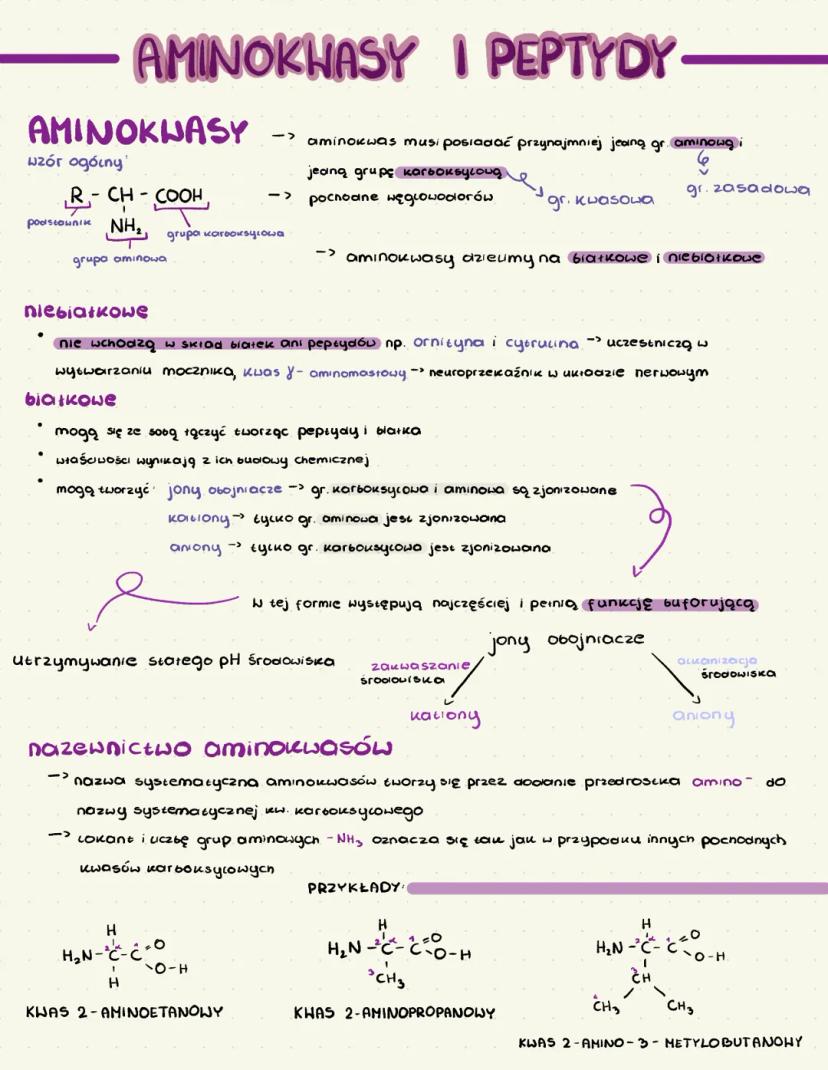 AMINOKWASY I PEPTYDY
AMINOKWASY
wzór ogólny:
R - CH - COOH
NH₂
podstawnik
grupa karboksylowa
grupa aminowa
-> aminokwas musi posiadać przynajmniej jedną gr. aminową i
jedną grupę karboksylową
gr. kwasowa
gr. zasadowa
-> pochodne węglowodorów
-> aminokwasy dzielimy na białkowe i niebiałkowe
niebiałkowe
• nie wchodzą w skład białek ani peptydów np. ornityna i cytrulina -> uczestniczą w
wytwarzaniu mocznika, kwas γ- aminomasłowy -> neuroprzekaźnik w układzie nerwowym
białkowe
• mogą się ze sobą łączyć tworząc peptydy i białka
• właściwości wynikają z ich budowy chemicznej
• mogą tworzyć: jony obojnacze -> gr. karboksylowa i aminowa są zjonizowane
kationy -> tylko gr. aminowa jest zjonizowana
aniony -> tylko gr. karboksylowa jest zjonizowana
W tej formie występują najczęściej i pełnią funkcję buforującą
utrzymywanie stałego pH środowiska
jony obojnacze
zakwaszanie
środowiska
alkalizacja
środowiska
kationy
aniony
nazewnictwo aminokwasów
-> nazwa systematyczna aminokwasów tworzy się przez dodanie przedrostka amino- do
nazwy systematycznej kw. karboksylowego
-> lokant i liczbę grup aminowych -NH₃ oznacza się tak jak w przypadku innych pochodnych
kwasów karboksylowych
PRZYKŁADY:
H
H₂N - ²Cα - ¹C = O
O - H
H
KWAS 2-AMINOETANOWY
H
H₂N - ²Cα - ¹C = O
O - H
³CH₃
KWAS 2-AMINOPROPANOWY
H
H₂N - ²Cα - ¹C = O
O - H
³CH
⁴CH₃ CH₃
KWAS 2-AMINO-3-METYLOBUTANOWY